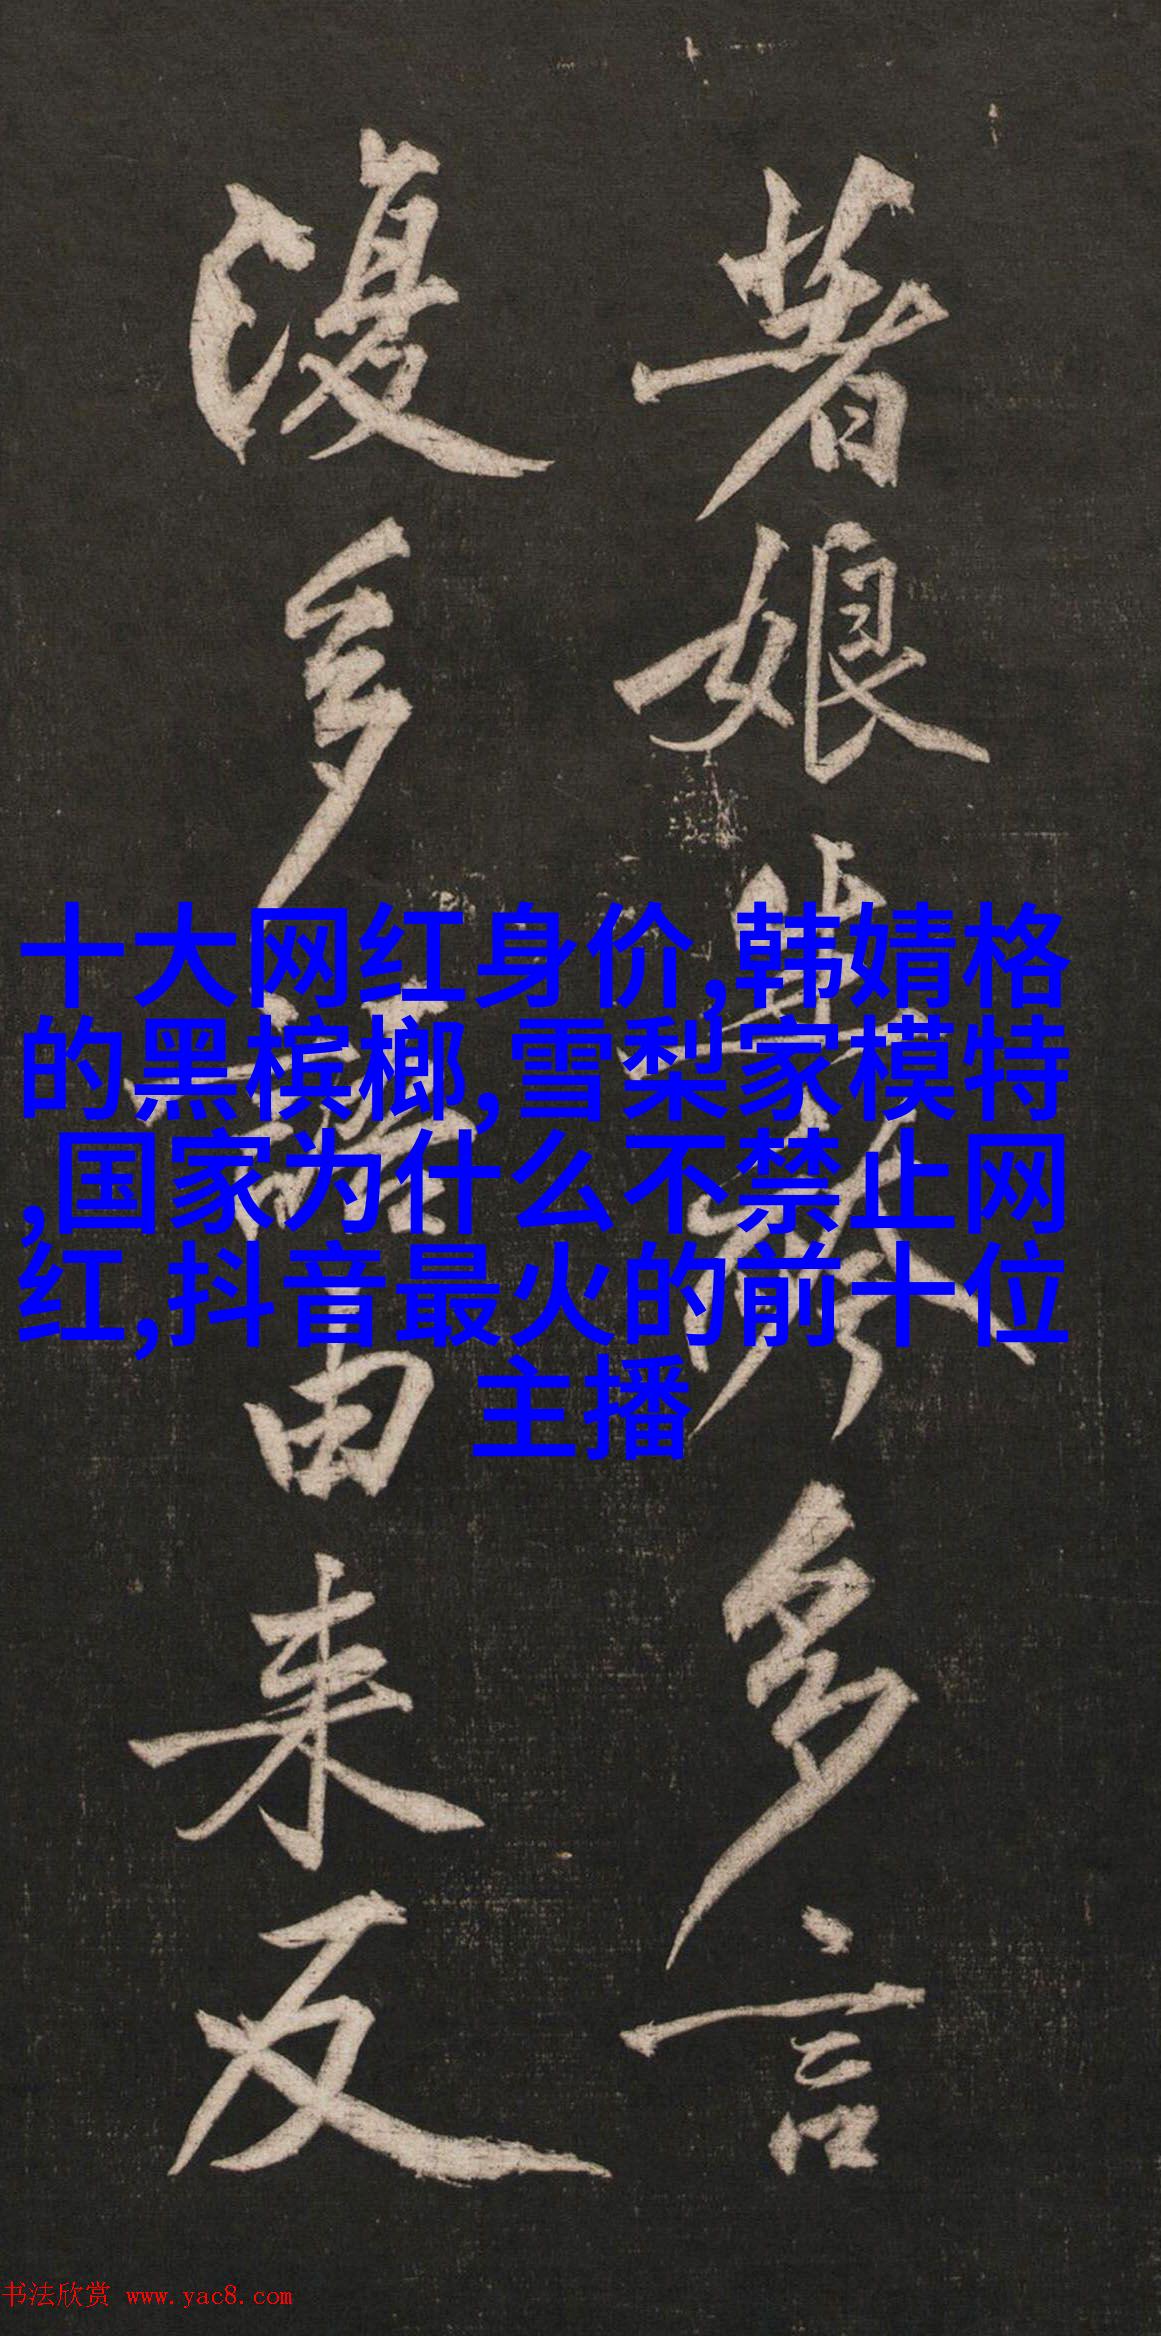 著娘多言
復多語由来反
十大网红身价,韩婧格
的黑槟榔,雪梨家模特
,国家为什么不禁止网
红,抖音最火的前十位
主播
书法欣赏 www.yac8.com